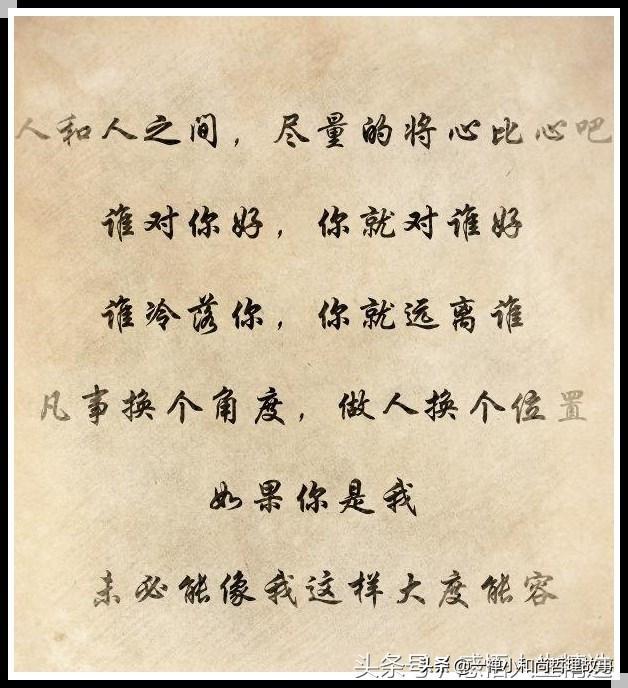 人和人之间，尽量的将心比心吧
谁对你好，你就对谁好
谁冷落你，你就远离谁
凡事换个角度，做人换个位置
如果你是我
未必能像我这样大度能容
头条 @一禅小和尚哲理故事